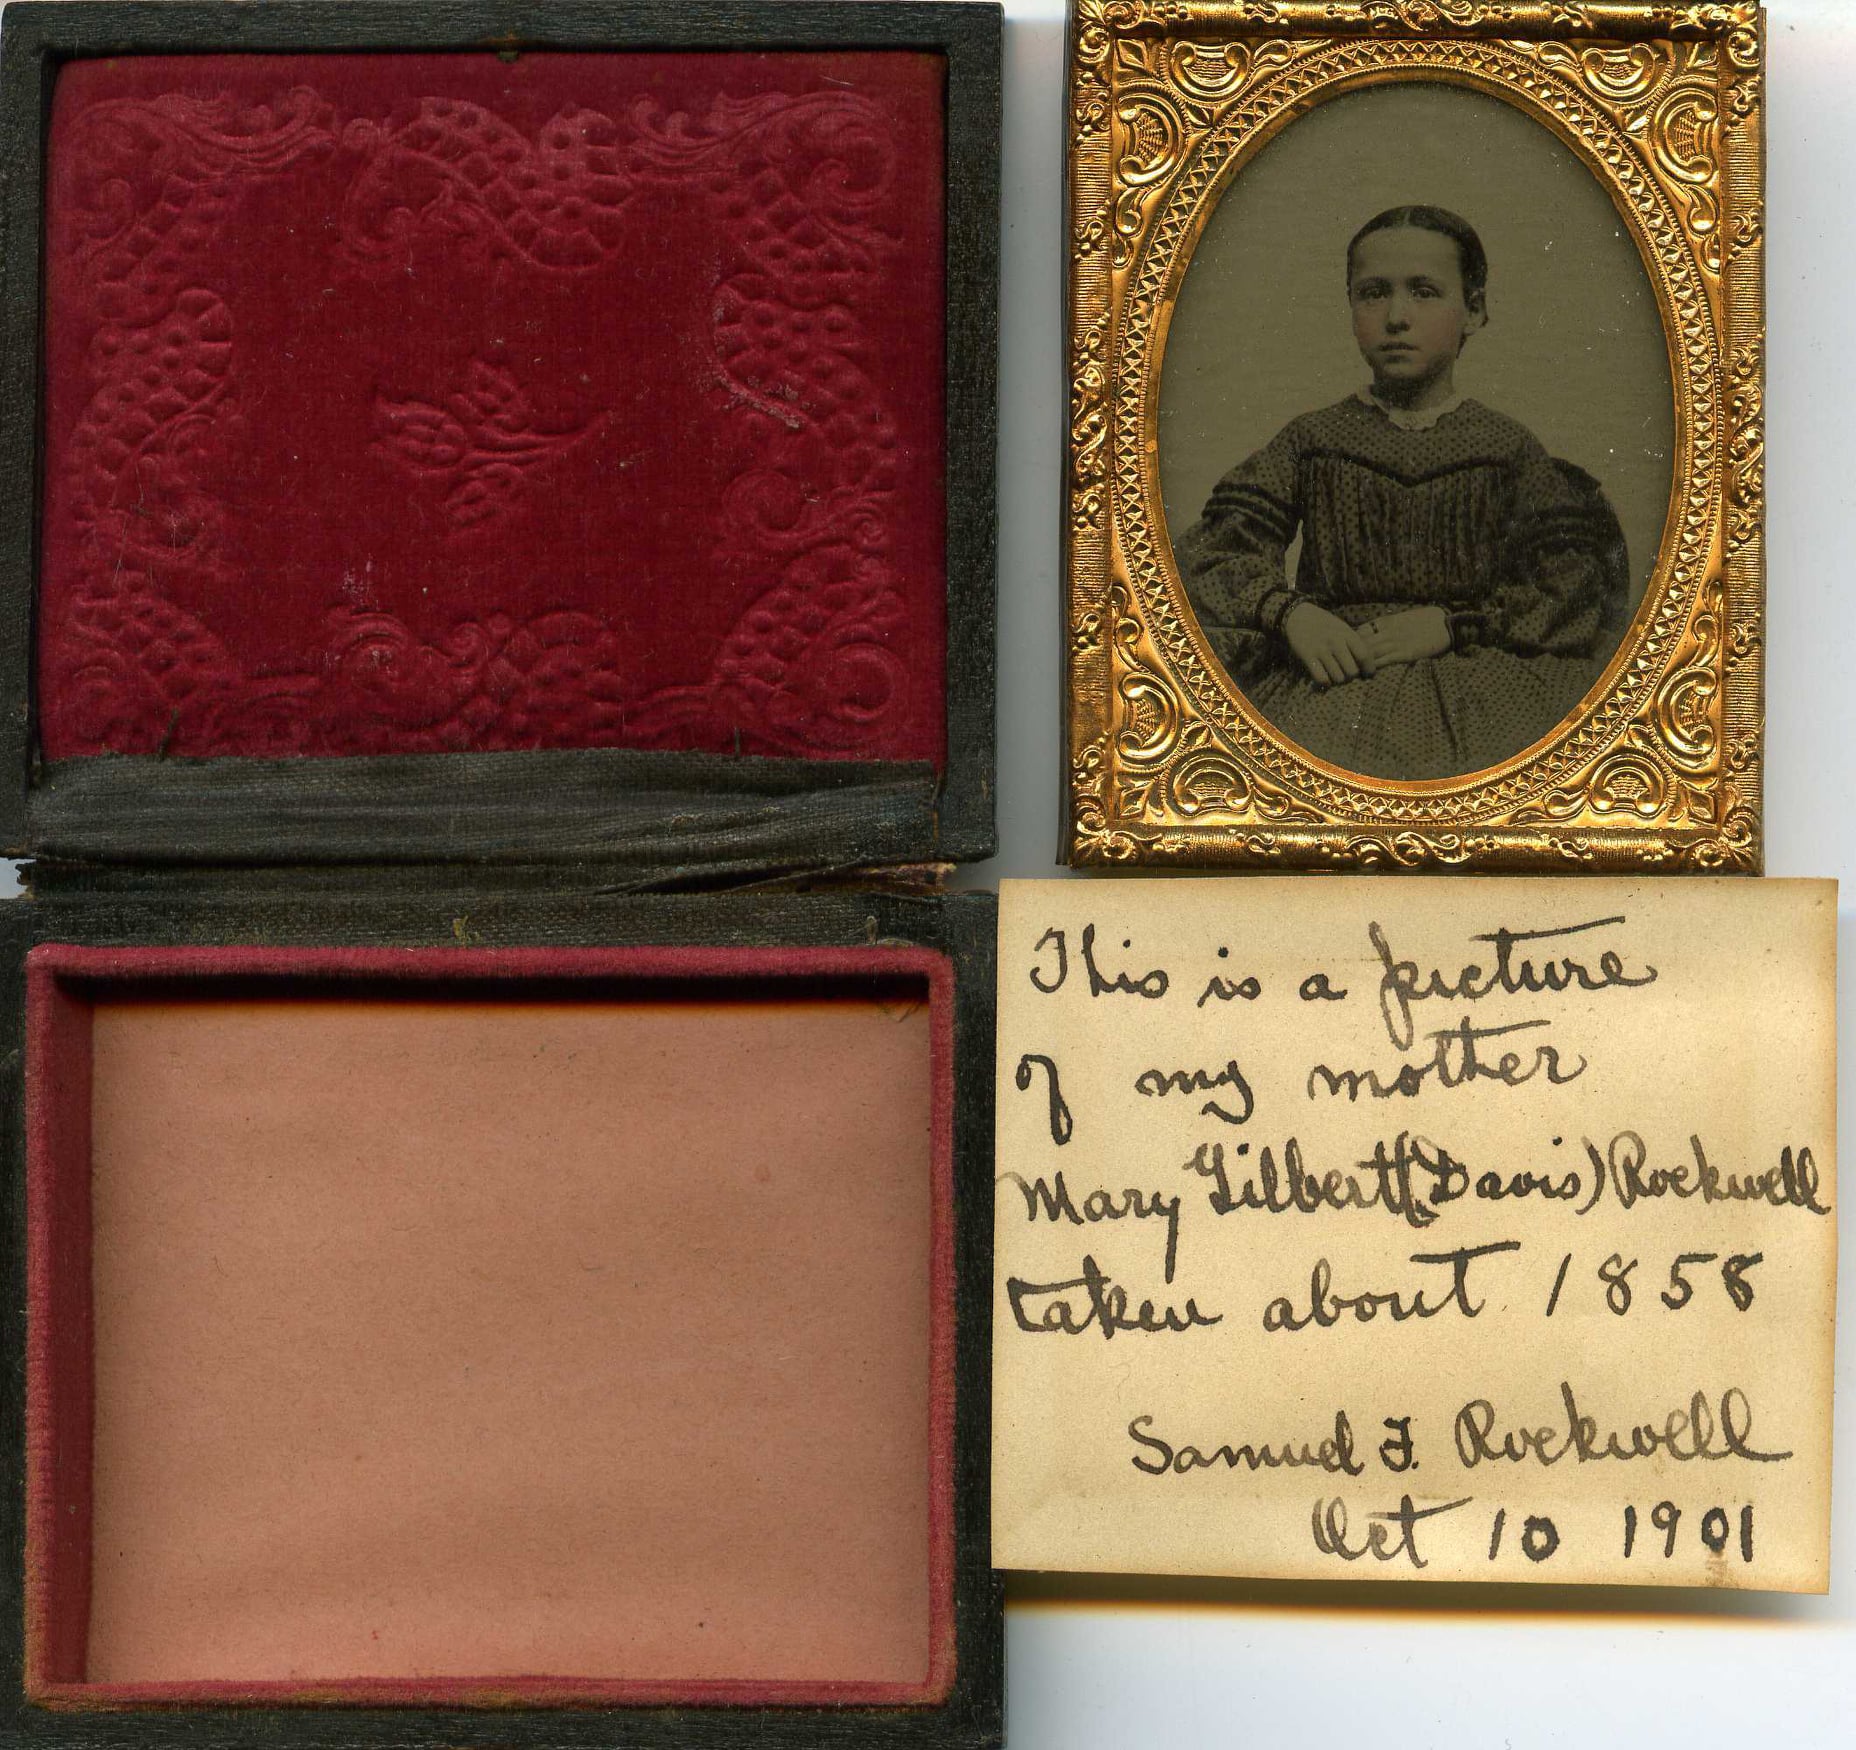 This is a picture
of my mother
Mary Gilbert (Davis) Rockwell
taken about 1858
Samuel F. Rockwell
Oct 10 1901